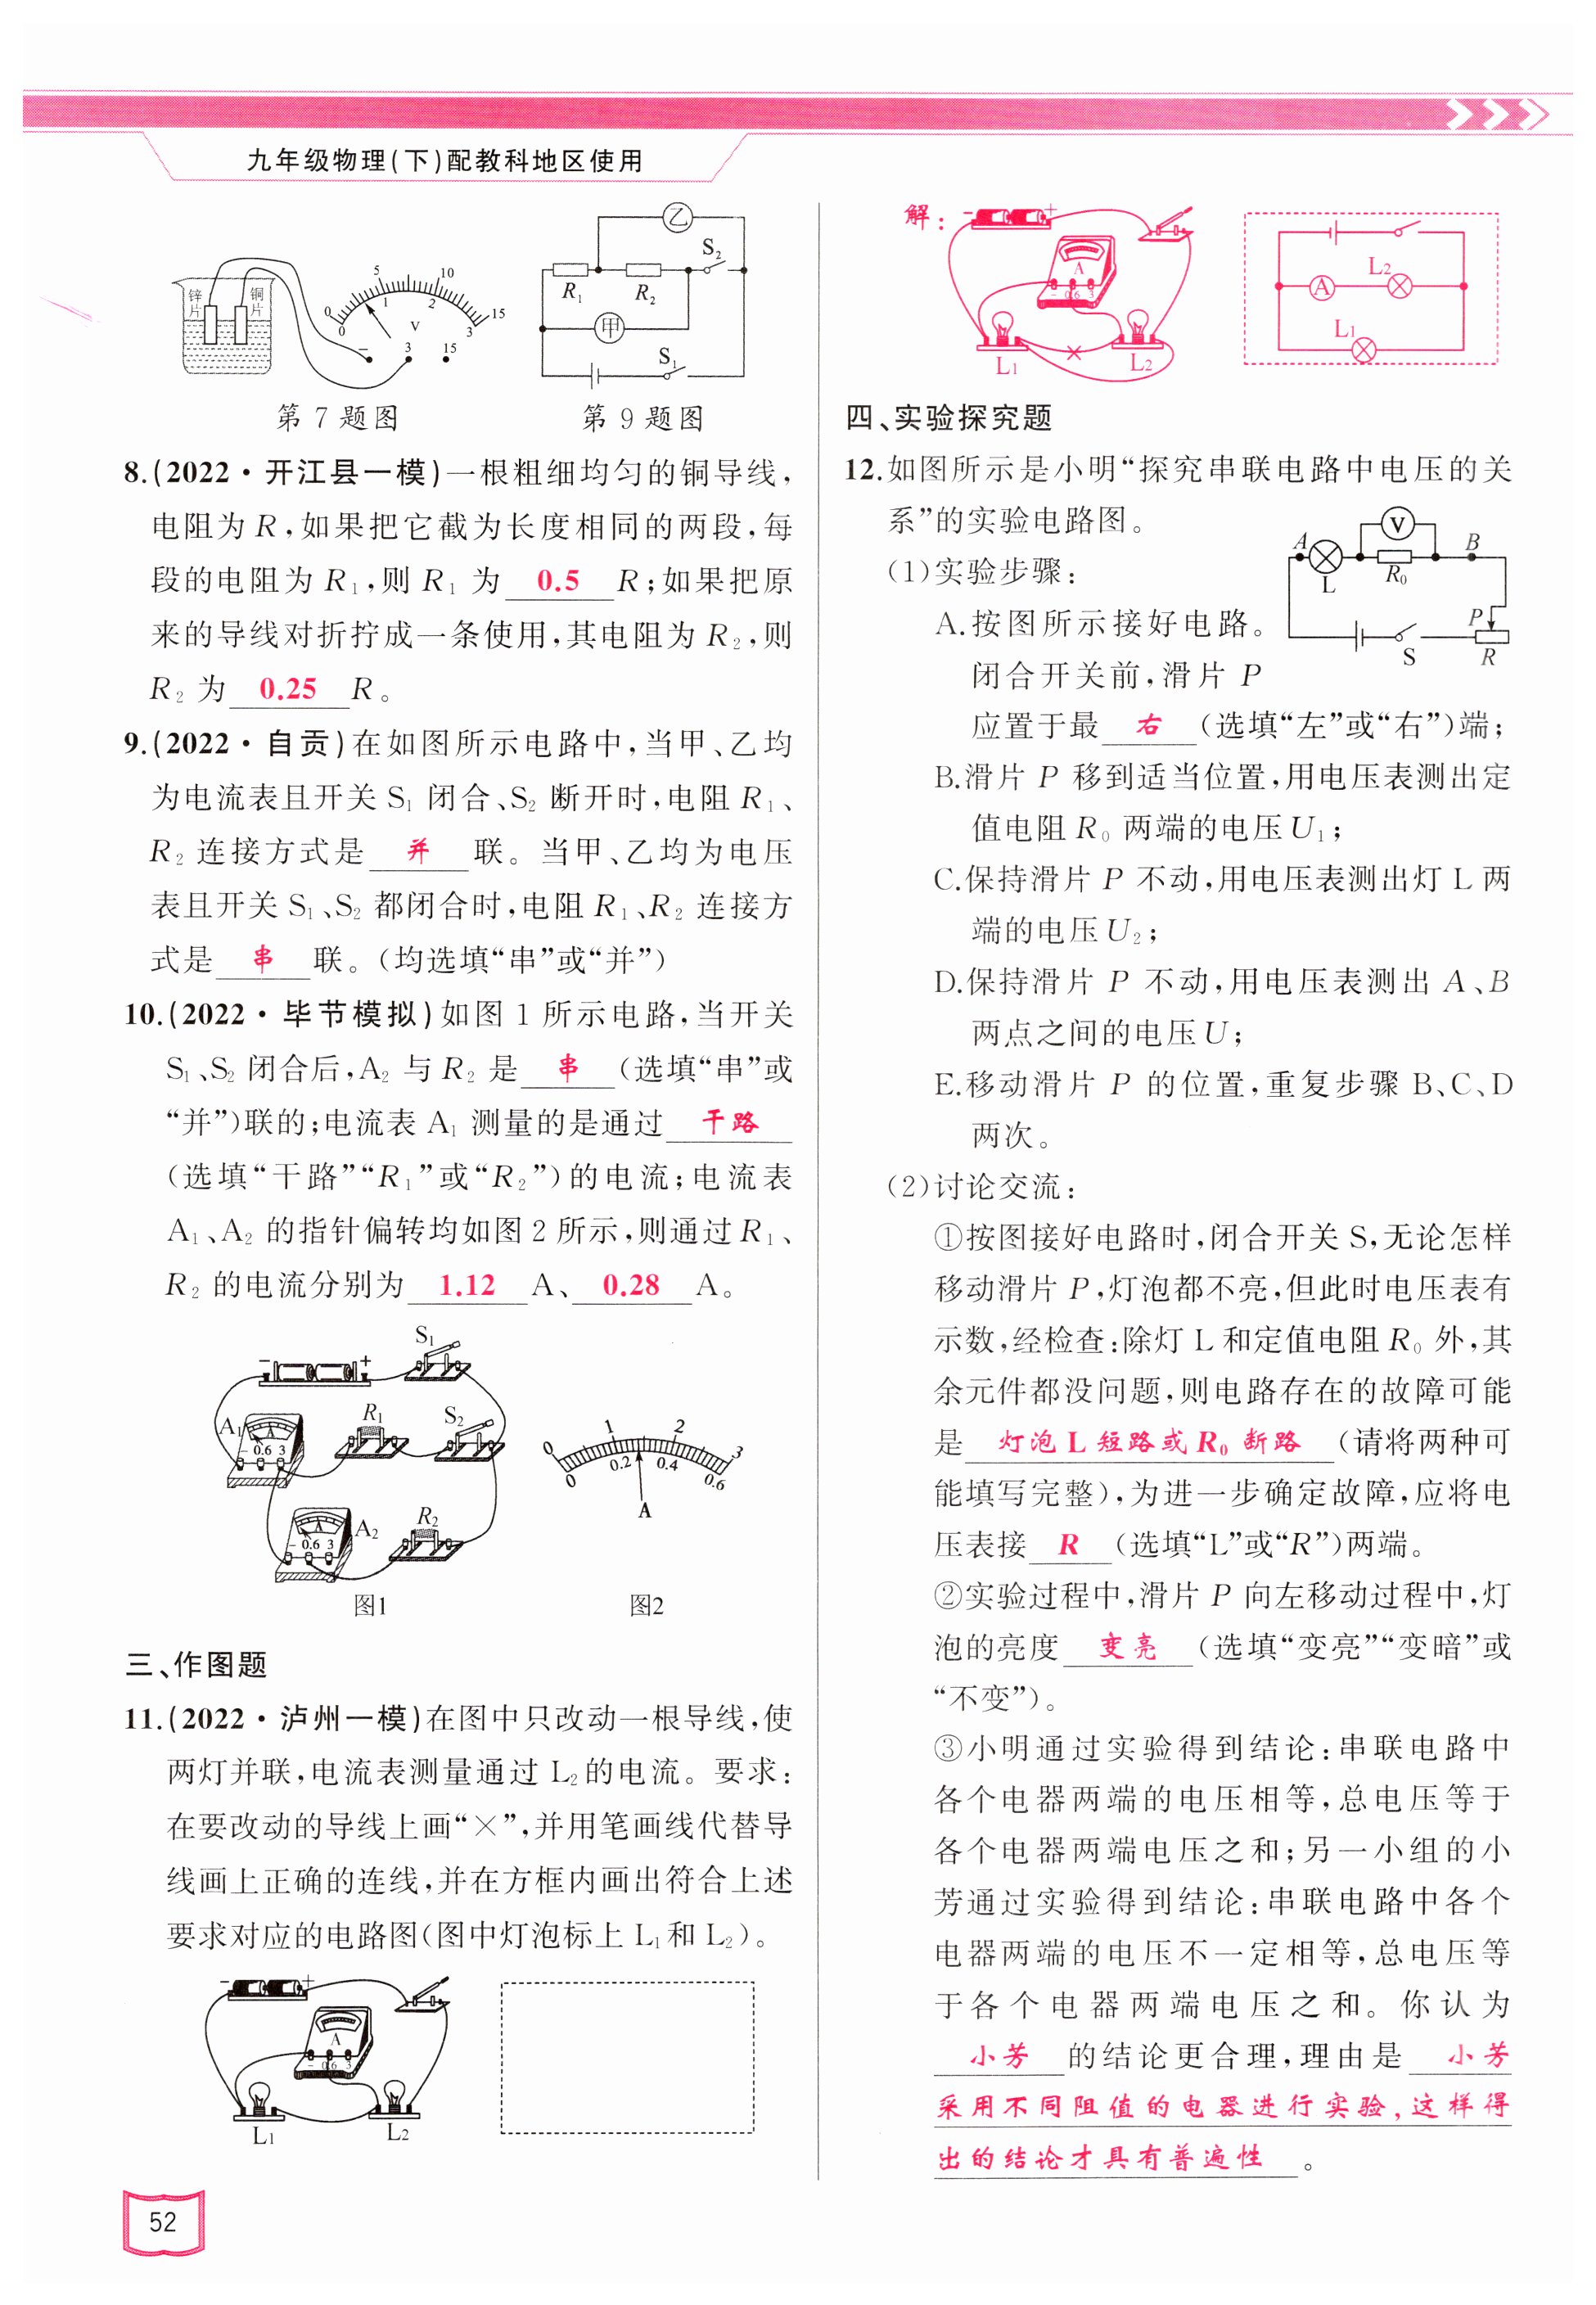 九年级物理(下)配教科地区使用
锌片
铜片
0 5 10 15
0 1 2 3
V
- 3 15
第7题图
乙
S₂
R₁ R₂
甲
S₁
第9题图
8.(2022·开江县一模)一根粗细均匀的铜导线,
电阻为R,如果把它截为长度相同的两段,每
段的电阻为R₁,则R₁为 0.5 R;如果把原
来的导线对折拧成一条使用,其电阻为R₂,则
R₂为 0.25 R。
9.(2022·自贡)在如图所示电路中,当甲、乙均
为电流表且开关S₁闭合、S₂断开时,电阻R₁、
R₂连接方式是 并 联。当甲、乙均为电压
表且开关S₁、S₂都闭合时,电阻R₁、R₂连接方
式是 串 联。(均选填“串”或“并”)
10.(2022·毕节模拟)如图1所示电路,当开关
S₁、S₂闭合后,A₂与R₂是 串 (选填“串”或
“并”)联的;电流表A₁测量的是通过 干路
(选填“干路”“R₁”或“R₂”)的电流;电流表
A₁、A₂的指针偏转均如图2所示,则通过R₁、
R₂的电流分别为 1.12 A、 0.28 A。
- +
S₁
A₁
A
- 0.6 3
R₁
S₂
A
- 0.6 3
A₂
R₂
图1
0 1 2 3
0 0.2 0.4 0.6
A
图2
三、作图题
11.(2022·泸州一模)在图中只改动一根导线,使
两灯并联,电流表测量通过L₂的电流。要求:
在要改动的导线上画“×”,并用笔画线代替导
线画上正确的连线,并在方框内画出符合上述
要求对应的电路图(图中灯泡标上L₁和L₂)。
- +
A
- 0.6 3
L₁ L₂
52
解:
- +
A
- 0.6 3
×
L₁ L₂
L₂
A
L₁
四、实验探究题
12.如图所示是小明“探究串联电路中电压的关
系”的实验电路图。
V
A B
L R₀
P
S R
(1)实验步骤:
A.按图所示接好电路。
闭合开关前,滑片P
应置于最 右 (选填“左”或“右”)端;
B.滑片P移到适当位置,用电压表测出定
值电阻R₀两端的电压U₁;
C.保持滑片P不动,用电压表测出灯L两
端的电压U₂;
D.保持滑片P不动,用电压表测出A、B
两点之间的电压U;
E.移动滑片P的位置,重复步骤B、C、D
两次。
(2)讨论交流:
①按图接好电路时,闭合开关S,无论怎样
移动滑片P,灯泡都不亮,但此时电压表有
示数,经检查:除灯L和定值电阻R₀外,其
余元件都没问题,则电路存在的故障可能
是 灯泡L短路或R₀断路 (请将两种可
能填写完整),为进一步确定故障,应将电
压表接 R (选填“L”或“R”)两端。
②实验过程中,滑片P向左移动过程中,灯
泡的亮度 变亮 (选填“变亮”“变暗”或
“不变”)。
③小明通过实验得到结论:串联电路中
各个电器两端的电压相等,总电压等于
各个电器两端电压之和;另一小组的小
芳通过实验得到结论:串联电路中各个
电器两端的电压不一定相等,总电压等
于各个电器两端电压之和。你认为
小芳 的结论更合理,理由是 小芳
采用不同阻值的电器进行实验,这样得
出的结论才具有普遍性 。